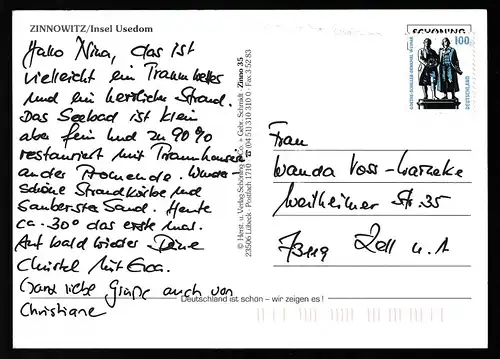 ZINNOWITZ/Insel Usedom
Hallo Nina, das ist
vielleicht ein Traumwetter
und ein herrlicher Strand.
Das Seebad ist klein
aber fein und zu 90%
restauriert mit Traumhäusern
an der Promenade. Wunder-
schöne Strandkörbe und
sauberster Sand. Heute
ca. 30° das erste mal.
Auf bald wieder Deine
Christel mit Eva.
Ganz liebe Grüße auch von
Christiane
© Horst u. Verlag Schöning & Co. + Gebr. Schmidt · Zinno 35
23506 Lübeck · Postfach 1710 ☎ (04 51) 310 310 0 · Fax 3 52 83
SCHÖNING
100
GOETHE-SCHILLER-DENKMAL WEIMAR
DEUTSCHLAND
Frau
Wanda Voss-
Weilheimer Str. 35
73119 Zell u. A
Deutschland ist schön – wir zeigen es !